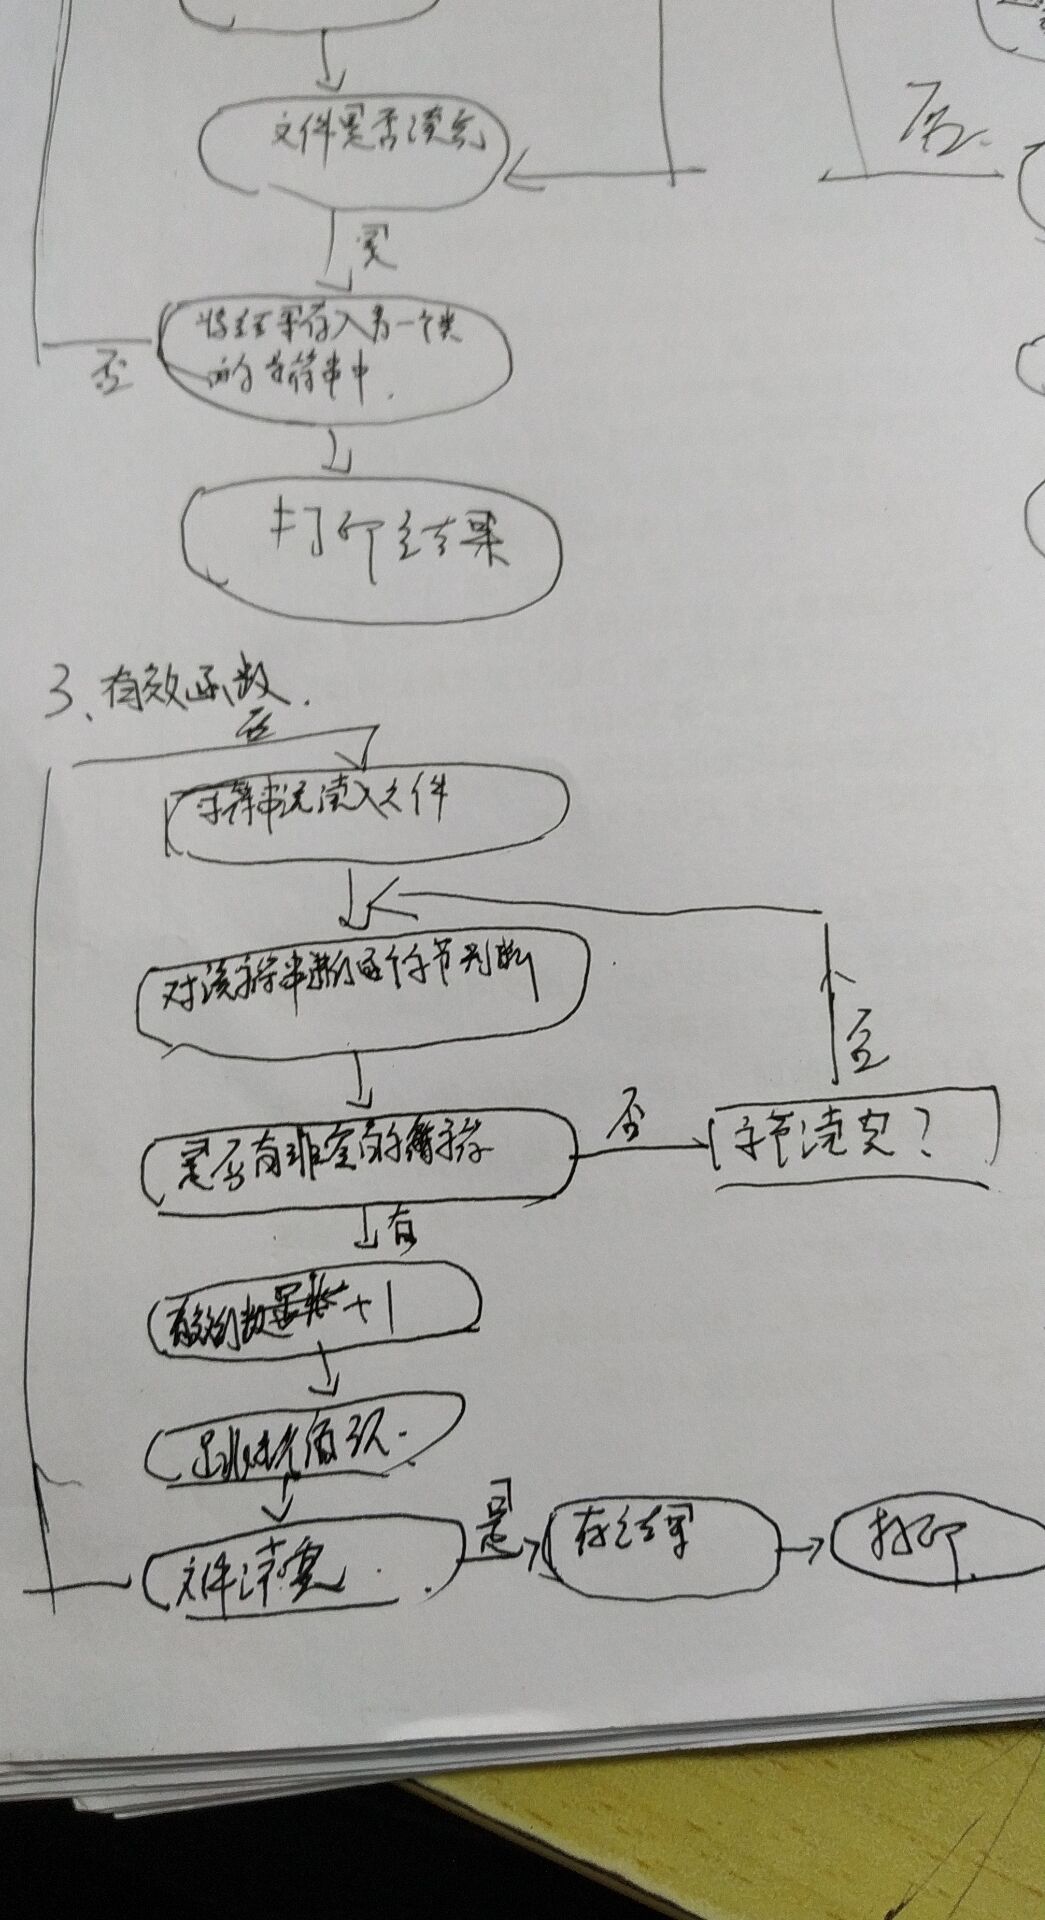 文件是否读完
否.
是
将结果存入另一个类
的字符串中.
否
打印结果
3、有效函数.
否
字符串流读入文件
对该字符串进行逐个字节判断
否
是否有非空的
否
字节读完？
有
+1
文件读完
是
存结果
打印